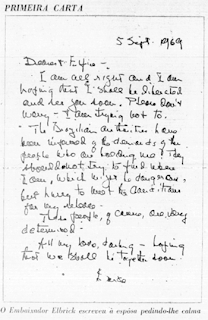 PRIMEIRA CARTA
5 Sept. 1969
Dearest Elfie -
I am all right and I am
hoping that I shall be liberated
and see you soon. Please don't
worry - I am trying not to.
The Brazilian authorities have
been informed of the demands of the
people who are holding me. They
should not try to find where
I am, which might be dangerous,
but hurry to meet the conditions
for my release -
These people, of course, are very
determined -
All my love, darling - hoping
that we shall be together soon
O Embaixador Elbrick escreveu à espôsa pedindo-lhe calma